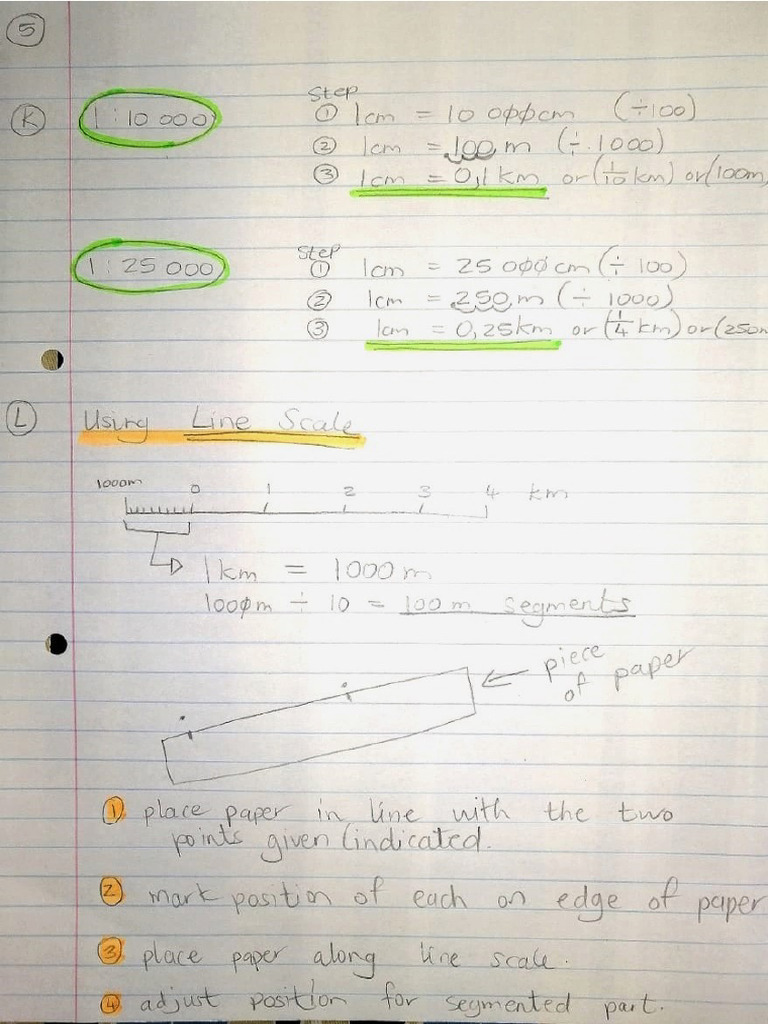 5
K
1:10 000
Step
① 1cm = 10 000cm (÷100)
② 1cm = 100 m (÷ 1000)
③ 1cm = 0,1 km or (1/10 km) or (100m)
1:25 000
Step
① 1cm = 25 000 cm (÷ 100)
② 1cm = 250 m (÷ 1000)
③ 1cm = 0,25km or (1/4 km) or (250m
L Using Line Scale
1000m 0 1 2 3 4 km
1km = 1000m
1000m ÷ 10 = 100 m segments
piece
of paper
① place paper in line with the two
points given (indicated.
② mark position of each on edge of paper
③ place paper along line scale.
④ adjust position for segmented part.